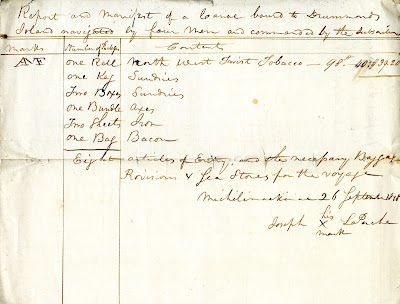 Report and Manifest of a Canoe bound to Drummonds
Island navigated by four Men and commanded by the Subscriber
Marks Number of Packages Contents
one Roll North West Twist Tobacco — 98lb
one Keg Sundries
Two Boxes Sundries
one Bundle Axes
Two Sheets Iron
one Bag Bacon
Eight articles of Entry, and the necessary Baggage
Provisions & Sea Stores for the voyage
Michilimackinac 26 September 1818
Joseph his x mark LaDuche